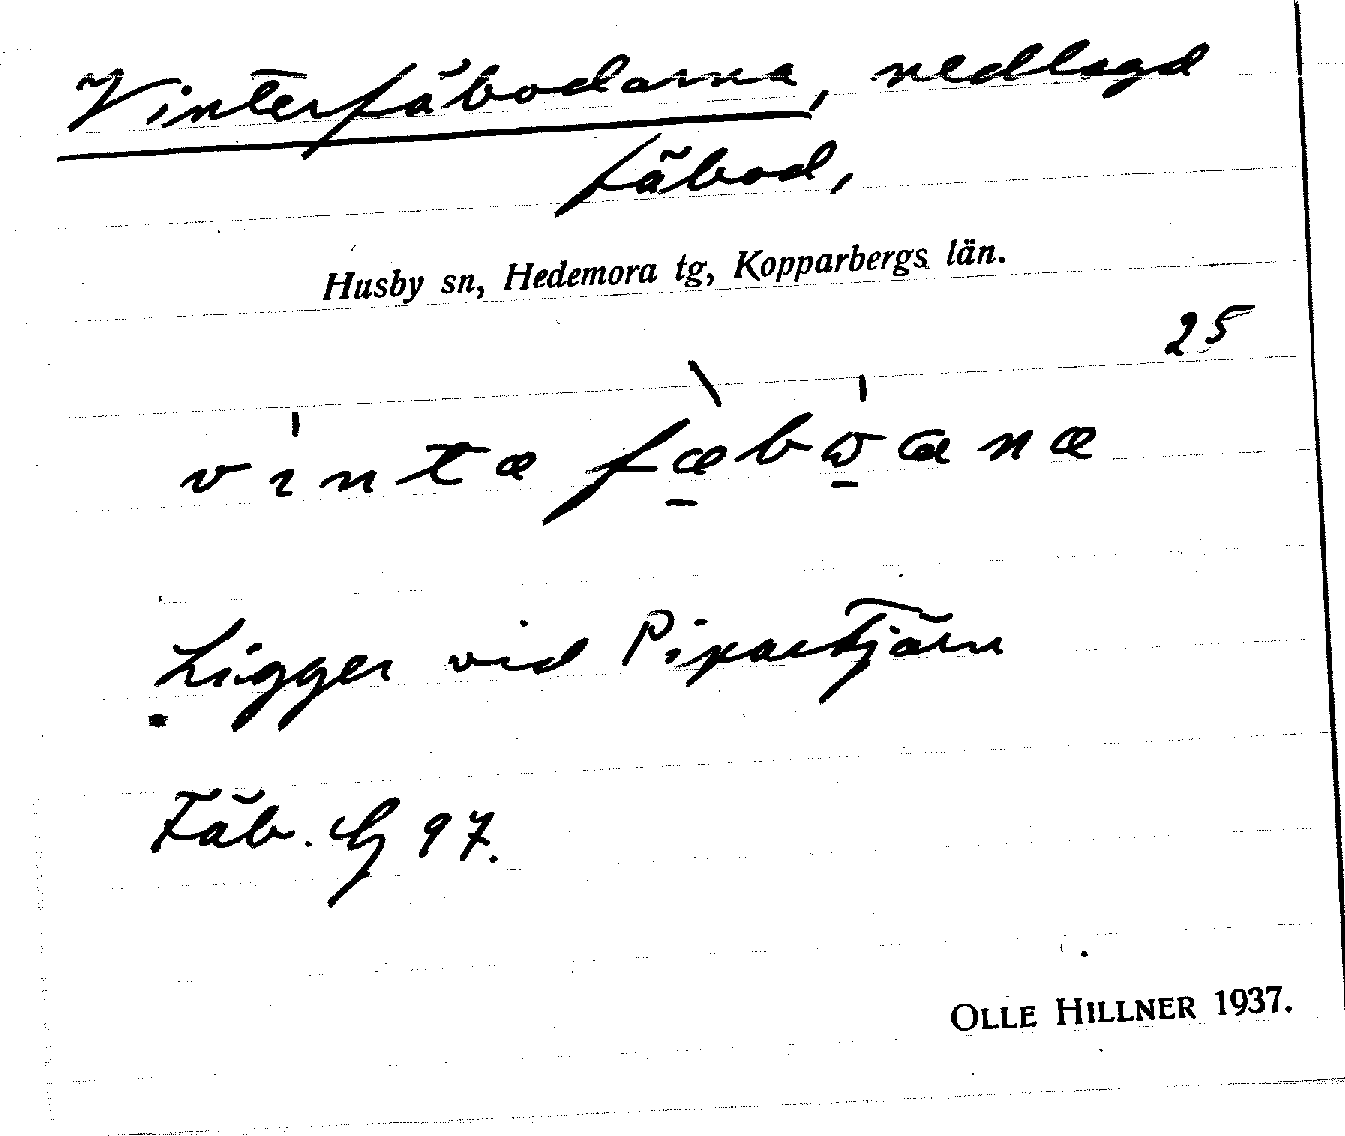 Vinterfäbodarna, nedlagd
fäbod,
Husby sn, Hedemora tg, Kopparbergs län.
25
Ligger vid Pipartjärn
Fäb. 97.
OLLE HILLNER 1937.